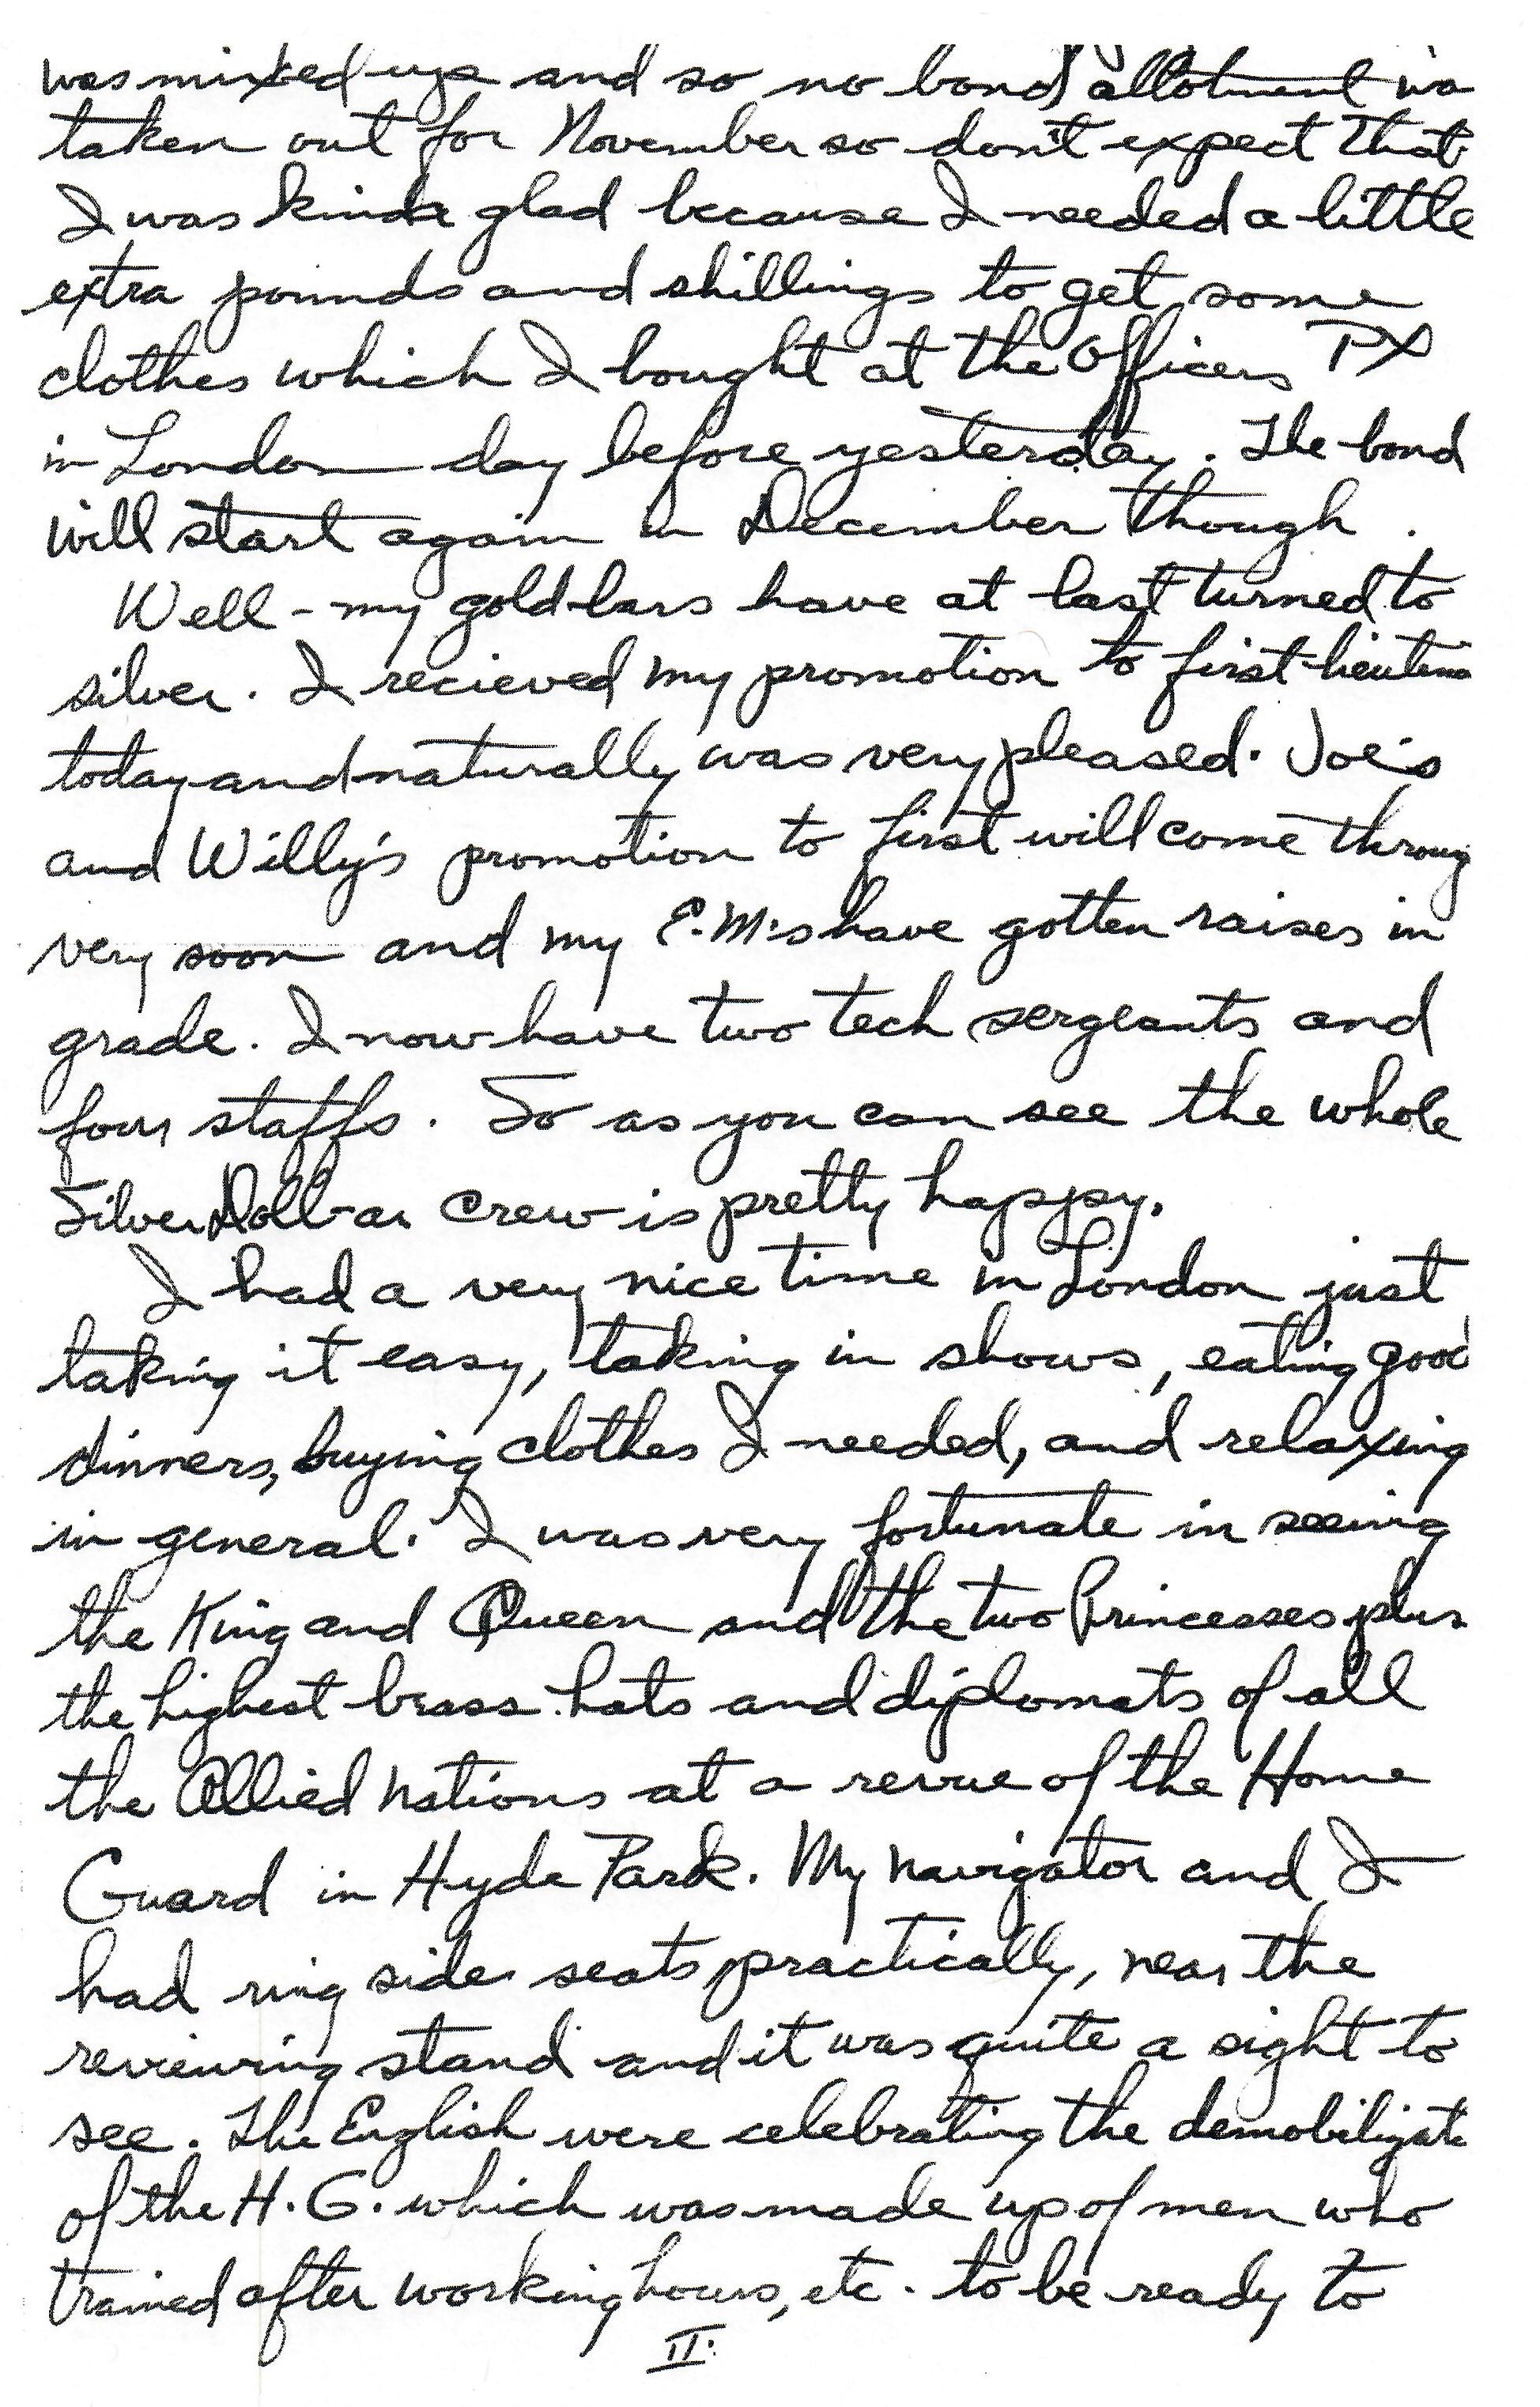 was mixed up and so no bond allotment wa
taken out for November so don't expect that
I was kinda glad because I needed a little
extra pounds and shillings to get some
clothes which I bought at the Officers PX
in London day before yesterday. The bond
will start again in December though.
Well - my gold bars have at last turned to
silver. I recieved my promotion to first lieutena
today and naturally was very pleased. Joe's
and Willy's promotion to first will come throug
very soon and my E.M.'s have gotten raises in
grade. I now have two tech sergeants and
four staffs. So as you can see the whole
Silver Dollar crew is pretty happy.
I had a very nice time in London just
taking it easy, taking in shows, eating good
dinners, buying clothes I needed, and relaxing
in general. I was very fortunate in seeing
the King and Queen and the two Princesses plus
the highest brass hats and diplomats of all
the Allied Nations at a revue of the Home
Guard in Hyde Park. My navigator and I
had ring side seats practically, near the
reviewing stand and it was quite a sight to
see. The English were celebrating the demobilizati
of the H.G. which was made up of men who
trained after working hours, etc. to be ready to
II.